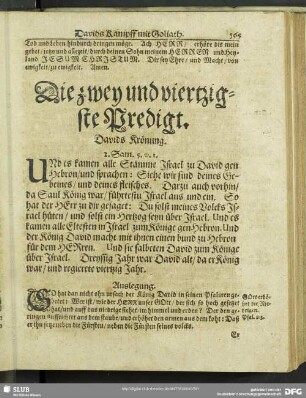 Davids Kampff mit Goliath. 365
Tod und leben hindurch dringen möge. Ach HERR/ erhöre diß mein
gebet/ jetzo und allezeit/ durch deinen Sohn meinem HERREN und Hey-
land JESUM CHRISTUM. Dir sey Ehre/ und Macht/ von
ewigkeit/ zu ewigkeit. Amen.
Die zwey und viertzig-
ste Predigt.
Davids Krönung.
2. Sam. 5. v. 1.
UNd es kamen alle Stämme Israel zu David gen
Hebron/ und sprachen: Siehe wir sind deines Ge-
beines/ und deines fleisches. Darzu auch vorhin/
da Saul König war/ führtestu Israel aus und ein. So
hat der HErr zu dir gesaget: Du solst meines Volcks Is-
rael hüten/ und solst ein Hertzog seyn über Israel. Und es
kamen alle Eltesten in Israel zum Könige gen Hebron. Und
der König David macht mit ihnen einen bund zu Hebron
für dem HERren. Und sie salbeten David zum Könige
über Israel. Dreyssig Jahr war David alt/ da er König
war/ und regierete viertzig Jahr.
Auslegung.
ES hat dan nicht ohn ursach der König David in seinen Psalmen ge-
Wer ist/ wie der HERR unser GOtt/ der sich so hoch gesetzet
hat/ und auff das niedrige siehet/ im himmel und erden? Der den ge-
ringen auffrichtet aus dem staube/ und erhöhet den armen aus dem koht: Daß
er ihn setze neben die Fürsten/ neben die Fürsten seines volcks.
Gott erhö-
het die Nie-
drigen.
Psal. 113.
Es
SLUB